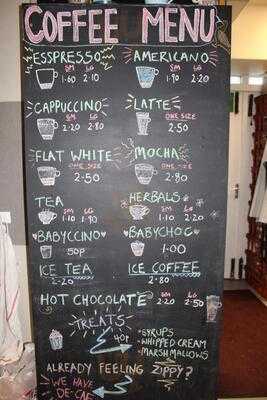 COFFEE MENU
ESSPRESSO AMERICANO
SM LG SM LG
1·60 2·10 1·90 2·20
CAPPUCCINO LATTE
SM LG ONE SIZE
2·20 2·80 2·50
FLAT WHITE MOCHA
ONE SIZE ONE SIZE
2·50 2·80
TEA HERBALS
SM LG SM LG
1·10 1·90 1·10 2·20
BABYCCINO BABYCHOC
50p 1·00
ICE TEA ICE COFFEE
2·20 2·80
HOT CHOCOLATE SM LG
2·20 2·50
TREATS
40p
·SYRUPS
·WHIPPED CREAM
·MARSHMALLOWS
ALREADY FEELING ZIPPY?
WE HAVE
DE-CAF